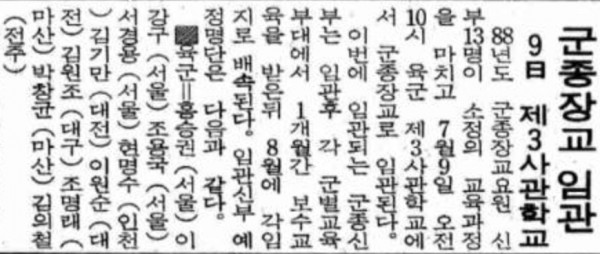 군종장교 임관
9日 제3사관학교
88년도 군종장교요원 신
부 13명이 소정의 교육과정
을 마치고 7월9일 오전
10시 육군 제3사관학교에
서 군종장교로 임관된다.
이번에 임관되는 군종신
부는 임관후 각 군별교육
부대에서 1개월간 보수교
육을 받은뒤 8월에 각임
지로 배속된다. 임관신부 예
정명단은 다음과 같다.
▨육군=홍승권(서울)이
강구(서울)조용국(서울)
서경용(서울)현명수(인천
)김기만(대전)이원순(대
전)김원조(대구)조명래(
마산)박창균(마산)김의철
(전주)